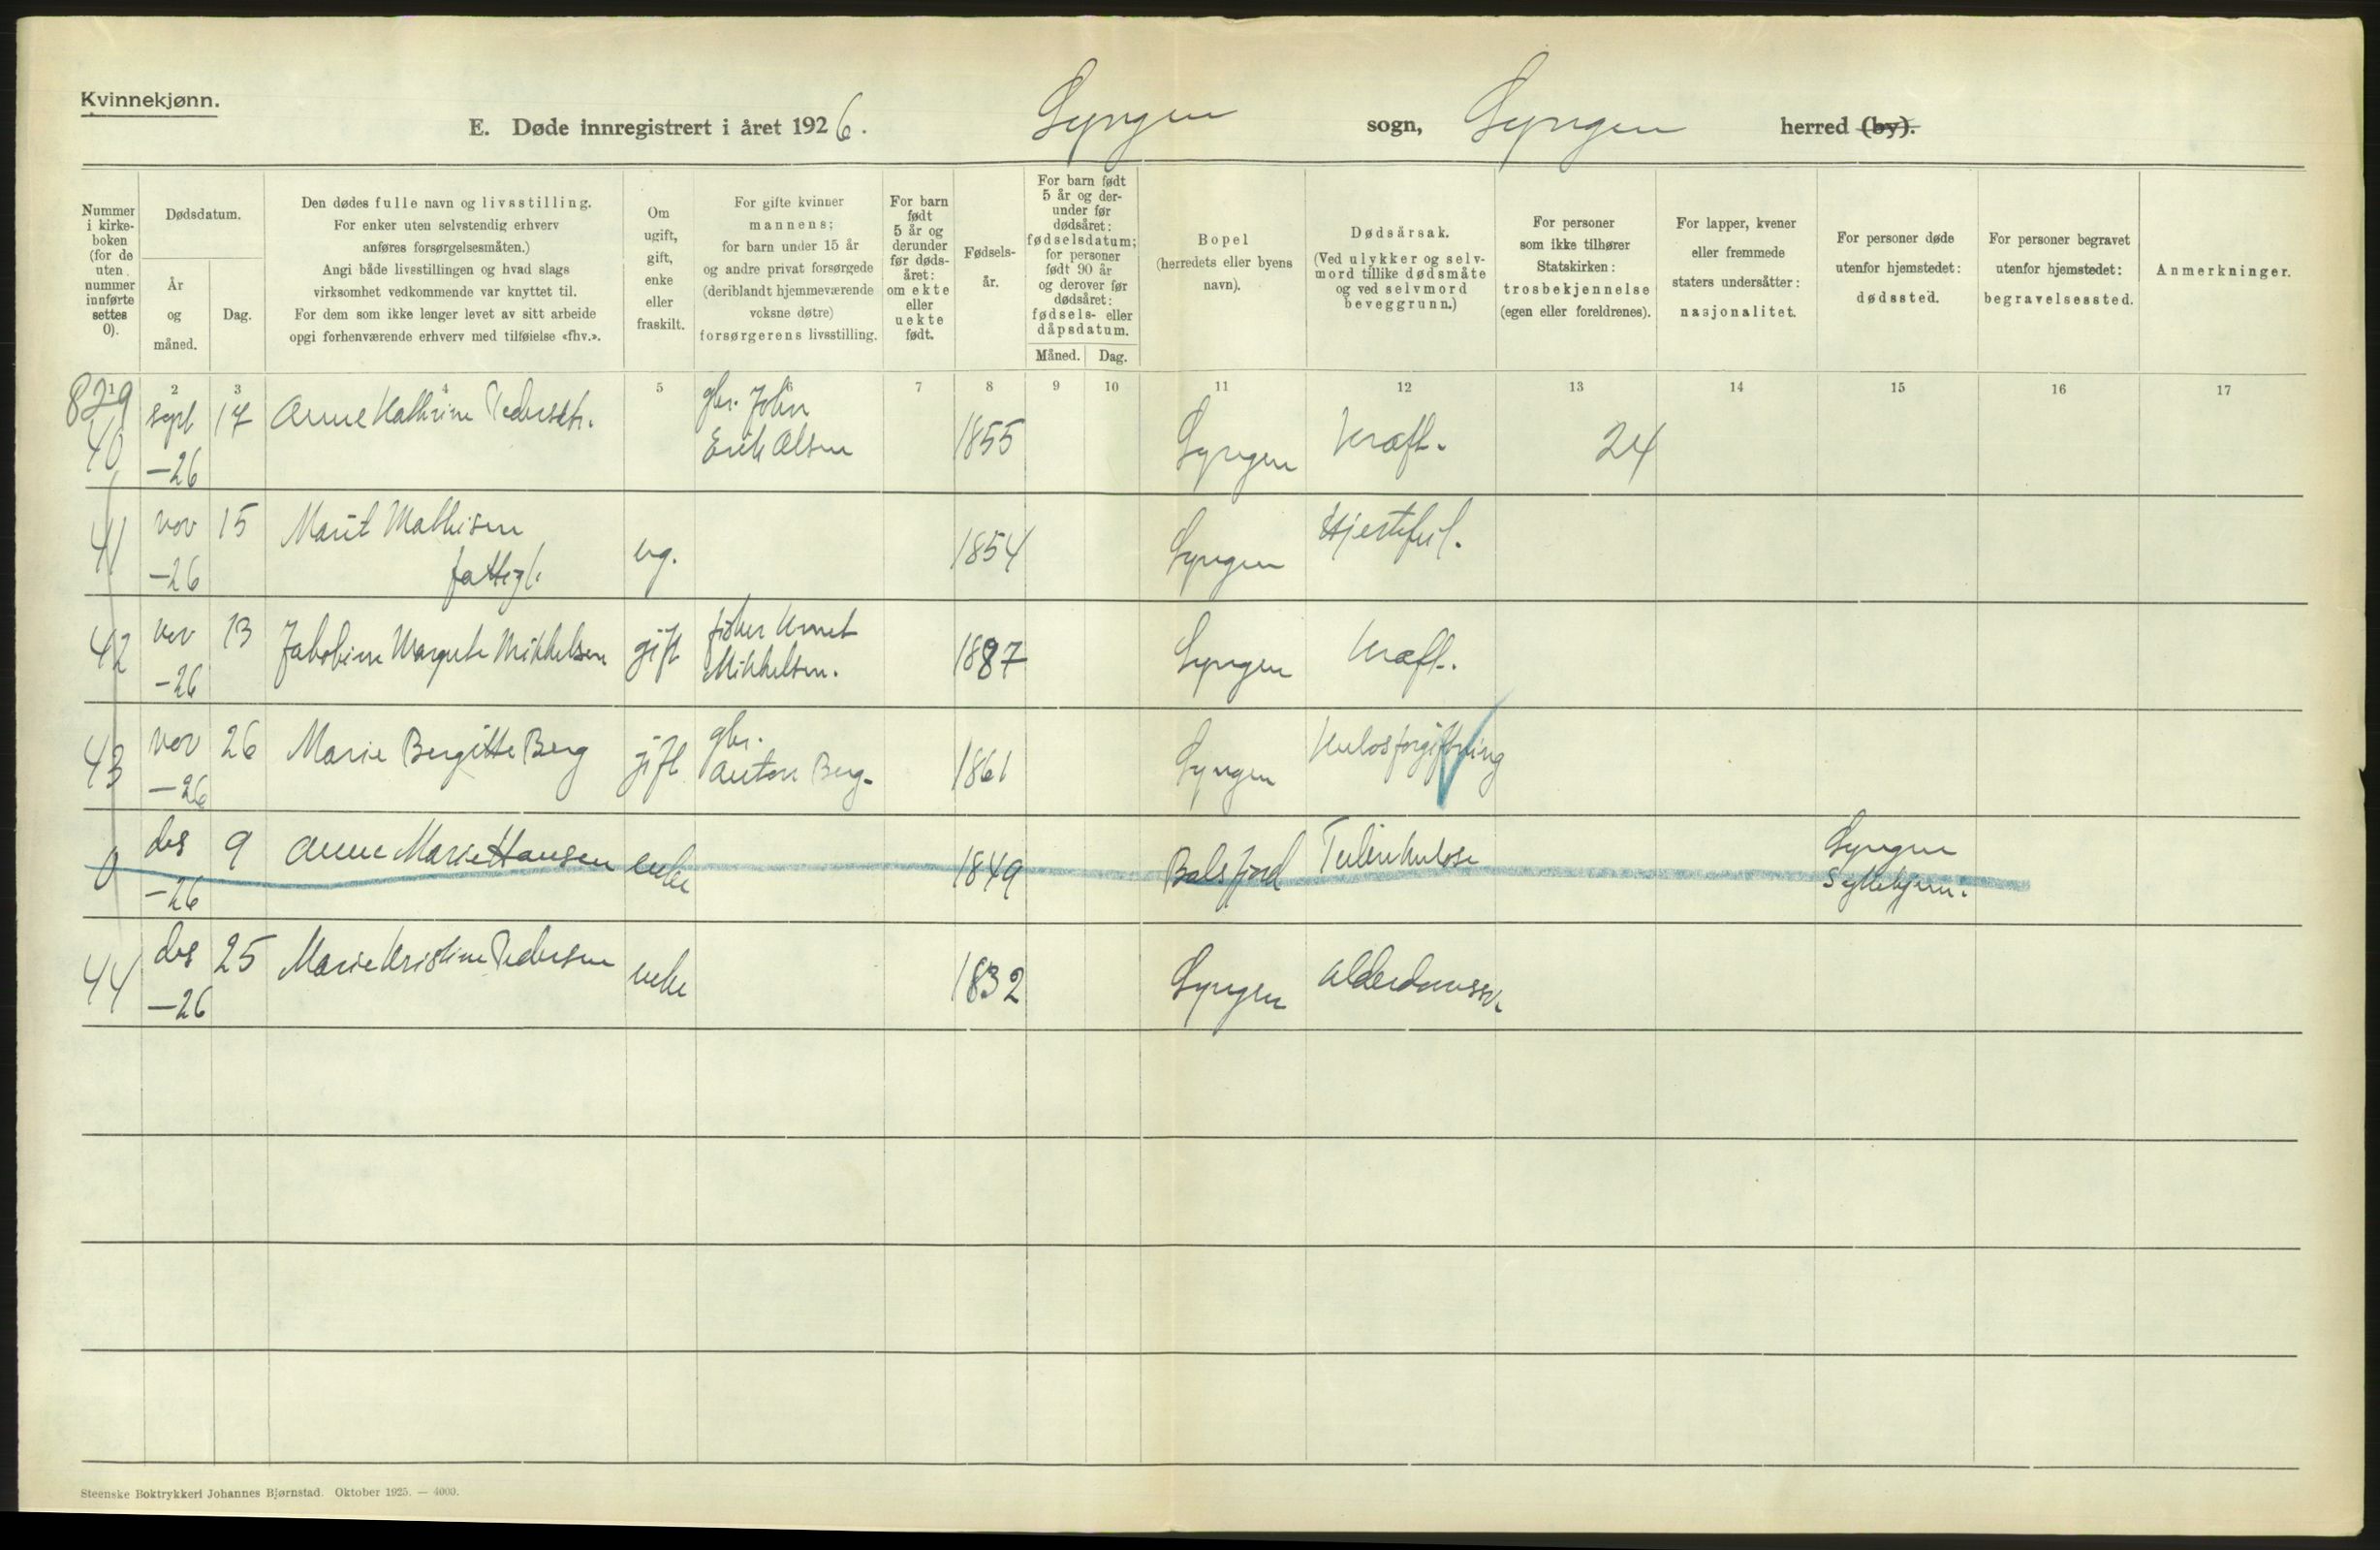 Kvinnekjønn.
E. Døde innregistrert i året 1926. Lyngen sogn, Lyngen herred (by).
Nummer i kirke-boken (for de uten nummer innførte settes 0).
Dødsdatum.
År og måned.
Dag.
Den dødes fulle navn og livsstilling.
For enker uten selvstendig erhverv
anføres forsørgelsesmåten.)
Angi både livsstillingen og hvad slags
virksomhet vedkommende var knyttet til.
For dem som ikke lenger levet av sitt arbeide
opgi forhenværende erhverv med tilføielse «fhv.».
Om
ugift,
gift,
enke
eller
fraskilt.
For gifte kvinner
mannens;
for barn under 15 år
og andre privat forsørgede
(deriblandt hjemmeværende
voksne døtre)
forsørgerens livsstilling.
For barn
født
5 år og
derunder
før døds-
året:
om ekte
eller
uekte
født.
Fødsels-
år.
For barn født
5 år og der-
under før
dødsåret:
fødselsdatum;
for personer
født 90 år
og derover før
dødsåret:
fødsels- eller
dåpsdatum.
Måned. Dag.
Bopel
(herredets eller byens
navn).
Dødsårsak.
(Ved ulykker og selv-
mord tillike dødsmåte
og ved selvmord
beveggrunn.)
For personer
som ikke tilhører
Statskirken:
trosbekjennelse
(egen eller foreldrenes).
For lapper, kvener
eller fremmede
staters undersåtter:
nasjonalitet.
For personer døde
utenfor hjemstedet:
dødssted.
For personer begravet
utenfor hjemstedet:
begravelsessted.
Anmerkninger.
1 2 3 4 5 6 7 8 9 10 11 12 13 14 15 16 17
829
40 sept -26 17 Anne Kathrine Pedersdtr. gbr. John Erik Olsen 1855 Lyngen Kræft. 24
41 nov -26 15 Marit Mathisen fattigl. ug. 1854 Lyngen Hjertefeil.
42 nov -26 13 Jakobine Margrete Mikkelsen gift fisker Kunet Mikkelsen. 1887 Lyngen Kræft.
43 nov -26 26 Marie Bergitte Berg gift gbr. Anton Berg. 1861 Lyngen Kulosforgiftning
0 des -26 9 Anne Marie Hansen enke 1849 Balsfjord Tuberkulose Lyngen Sykehjem.
44 des -26 25 Marie Kristine Pedersen enke 1832 Lyngen Alderdomssv.
Steenske Boktrykkeri Johannes Bjørnstad. Oktober 1925. — 4000.